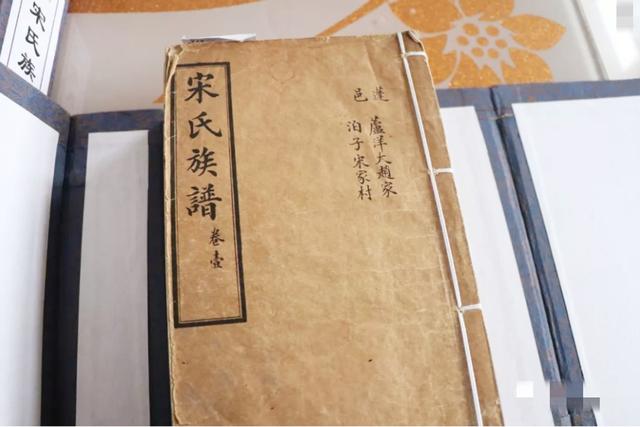 蓬 蘆洋大趙家
邑 泊子宋家村
宋氏族譜 卷壹
宋氏族